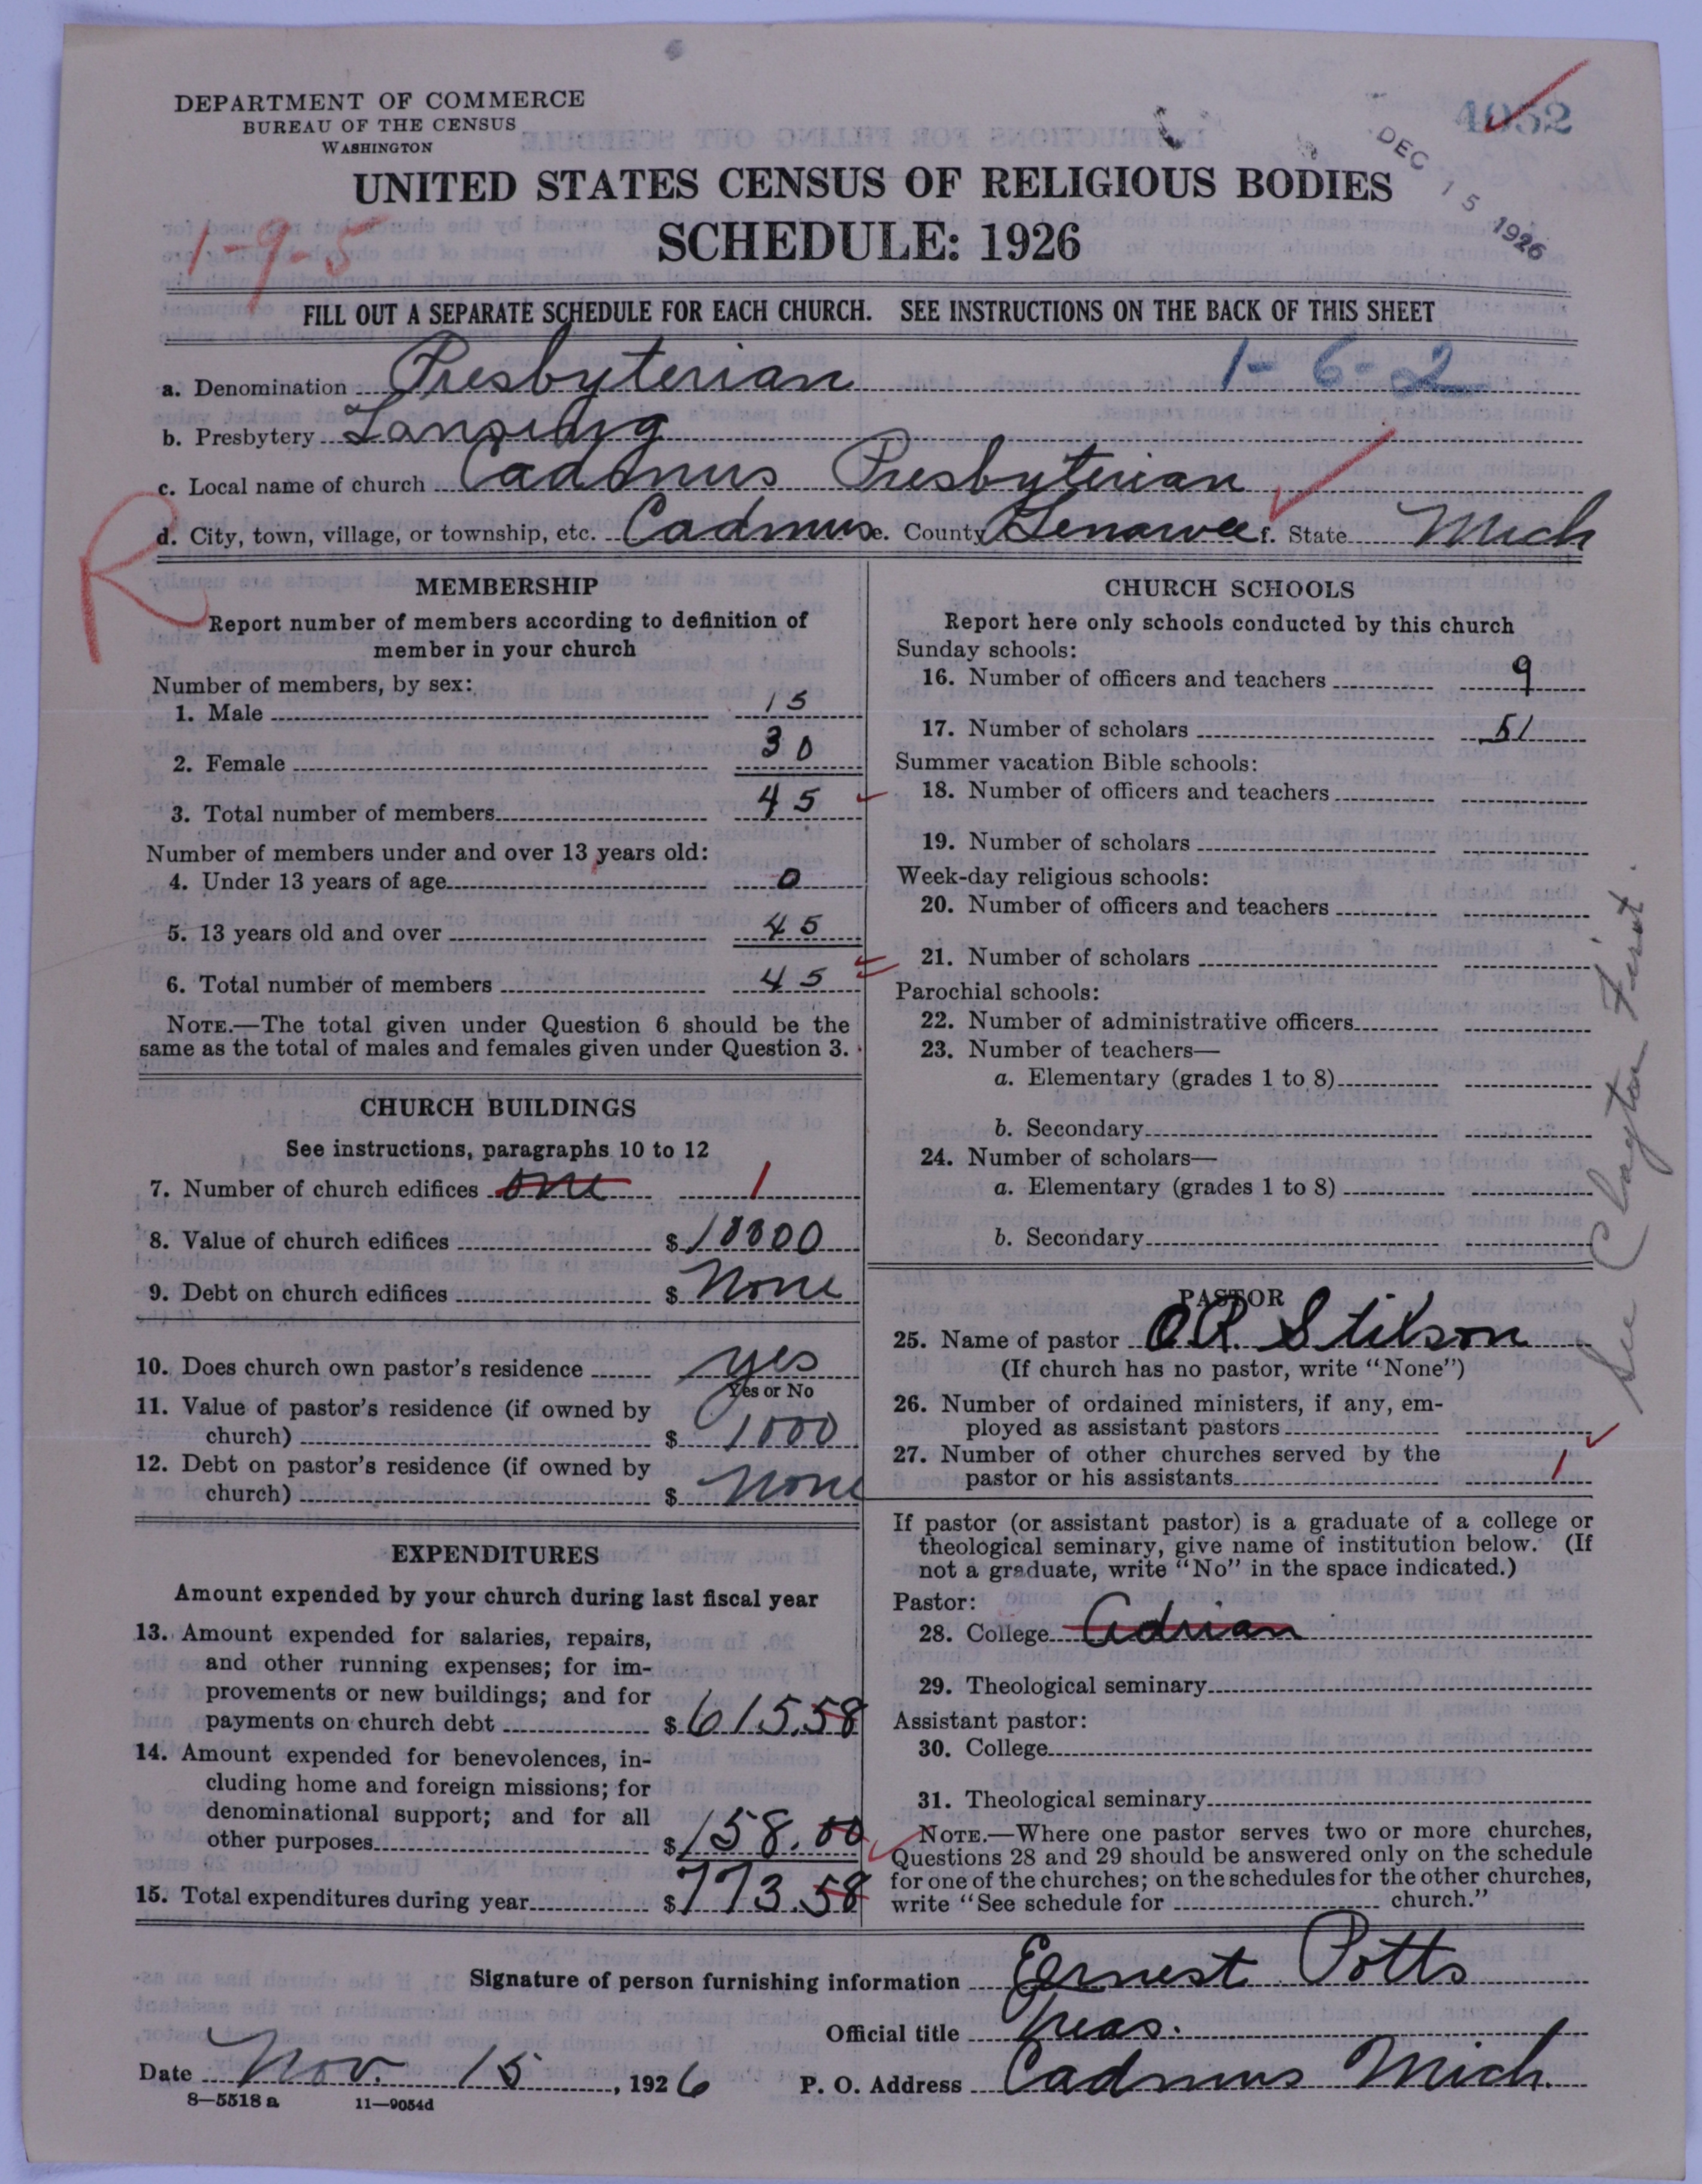 DEPARTMENT OF COMMERCE
BUREAU OF THE CENSUS
WASHINGTON
4052
DEC 15 1926
UNITED STATES CENSUS OF RELIGIOUS BODIES
SCHEDULE: 1926
1-9-5
FILL OUT A SEPARATE SCHEDULE FOR EACH CHURCH. SEE INSTRUCTIONS ON THE BACK OF THIS SHEET
a. Denomination Presbyterian 1-6-2
b. Presbytery Lansing
c. Local name of church Cadmus Presbyterian
d. City, town, village, or township, etc. Cadmus e. County Lenawee f. State Mich
R
MEMBERSHIP
Report number of members according to definition of
member in your church
Number of members, by sex:
1. Male 15
2. Female 30
3. Total number of members 45
Number of members under and over 13 years old:
4. Under 13 years of age 0
5. 13 years old and over 45
6. Total number of members 45
NOTE.—The total given under Question 6 should be the
same as the total of males and females given under Question 3.
CHURCH BUILDINGS
See instructions, paragraphs 10 to 12
7. Number of church edifices one 1
8. Value of church edifices $ 10000
9. Debt on church edifices $ None
10. Does church own pastor's residence yes
Yes or No
11. Value of pastor's residence (if owned by
church) $ 1000
12. Debt on pastor's residence (if owned by
church) $ None
EXPENDITURES
Amount expended by your church during last fiscal year
13. Amount expended for salaries, repairs,
and other running expenses; for im-
provements or new buildings; and for
payments on church debt $ 615.58
14. Amount expended for benevolences, in-
cluding home and foreign missions; for
denominational support; and for all
other purposes $ 158.00
15. Total expenditures during year $ 773.58
CHURCH SCHOOLS
Report here only schools conducted by this church
Sunday schools:
16. Number of officers and teachers 9
17. Number of scholars 51
Summer vacation Bible schools:
18. Number of officers and teachers
19. Number of scholars
Week-day religious schools:
20. Number of officers and teachers
21. Number of scholars
Parochial schools:
22. Number of administrative officers
23. Number of teachers—
a. Elementary (grades 1 to 8)
b. Secondary
24. Number of scholars—
a. Elementary (grades 1 to 8)
b. Secondary
See Clayton First.
PASTOR
25. Name of pastor O.R. Stilson
(If church has no pastor, write "None")
26. Number of ordained ministers, if any, em-
ployed as assistant pastors
27. Number of other churches served by the
pastor or his assistants 1
If pastor (or assistant pastor) is a graduate of a college or
theological seminary, give name of institution below. (If
not a graduate, write "No" in the space indicated.)
Pastor:
28. College Adrian
29. Theological seminary
Assistant pastor:
30. College
31. Theological seminary
NOTE.—Where one pastor serves two or more churches,
Questions 28 and 29 should be answered only on the schedule
for one of the churches; on the schedules for the other churches,
write "See schedule for church."
Signature of person furnishing information Ernest Potts
Official title Treas.
Date Nov. 15, 1926 P. O. Address Cadmus Mich.
8—5518 a 11—9054d